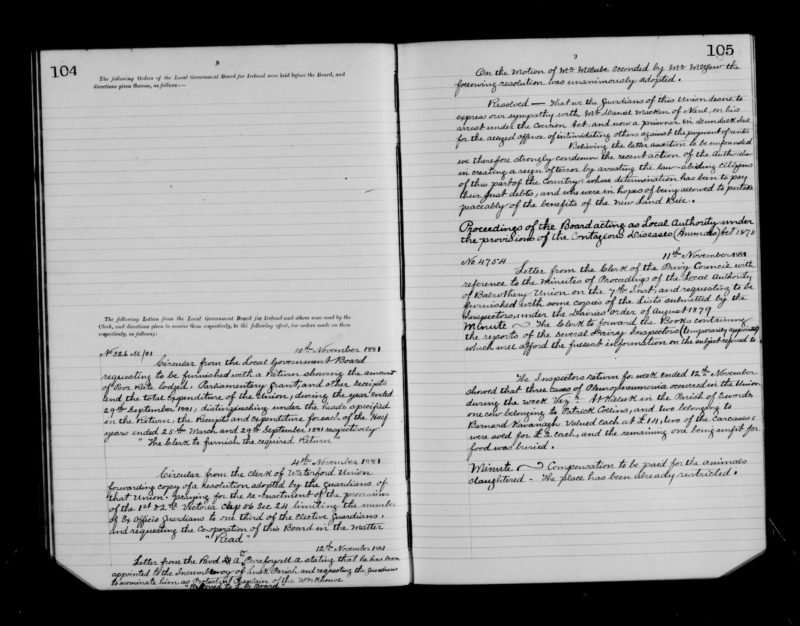 104
8
The following Orders of the Local Government Board for Ireland were laid before the Board, and
directions given thereon, as follows:—
The following Letters from the Local Government Board for Ireland and others were read by the
Clerk, and directions given to answer them respectively, to the following effect, for orders made on them
respectively, as follows:
10th November 1881
Circular from the Local Government Board
requesting to be furnished with a return showing the amount
of Poor Rate lodged. Parliamentary grant, and other receipts
and the total expenditure of the Union, during the year ended
29th September 1881, distinguishing under the heads specified
in the Return, the Receipts and expenditure for each of the Half
years ended 25th March and 29th September 1881 respectively
"The Clerk to furnish the required Return"
4th November 1881
Circular from the Clerk of Waterford Union
forwarding copy of a resolution adopted by the Guardians of
that Union praying for the re-enactment of the provisions
of the 1st & 2nd Victoria Cap 56 Sec 24 limiting the number
of Ex Officio Guardians to one third of the Elective Guardians,
and requesting the Co-operation of this Board in the matter
"Read"
12th November 1881
Letter from the Revd stating that he has been
appointed to the Incumbency of Lusk Parish and requesting the Guardians
to nominate him as Protestant Chaplain of the Workhouse
105
9
On the Motion of Mr McCabe seconded by Mr the
following resolution was unanimously adopted.
Resolved — That we the Guardians of this Union desire to
express our sympathy with Mr Daniel Mackin of Naul, on his
arrest under the Coercion Act and now a prisoner in Dundalk Jail
for the alleged offence of intimidating others against the payment of rents
Believing the latter assertion to be unfounded
we therefore strongly condemn the recent action of the Authorities
in creating a reign of terror by arresting the law-abiding Citizens
of this part of the Country, whose determination has been to pay
their just debts, and who were in hopes of being allowed to partake
peaceably of the benefits of the New Land Rule.
Proceedings of the Board acting as Local Authority under
the provisions of the Contagious Diseases (Animals) Act 1878
No 4754
11th November 1881
Letter from the Clerk of the Privy Council with
reference to the Minutes of Proceedings of the Local Authority
of Balrothery Union on the 7th Inst, and requesting to be
furnished with some copies of the lists submitted by the
Inspectors under the Dairies Order of August 1879
Minute — The Clerk to forward the Books containing
the reports of the several Dairy Inspectors (temporarily
which will afford the fullest information on the subject referred to
The Inspectors return for week ended 12th November
showed that three cases of Pleuropneumonia occurred in the Union
during the week Viz: At in the Parish of Swords
one cow belonging to Patrick Collins, and two belonging to
Bernard Kavanagh valued each at £14, two of the Carcases
were sold for £2 each, and the remaining one being unfit for
food was buried.
Minute — Compensation to be paid for the animals
slaughtered — The place has been already restricted.